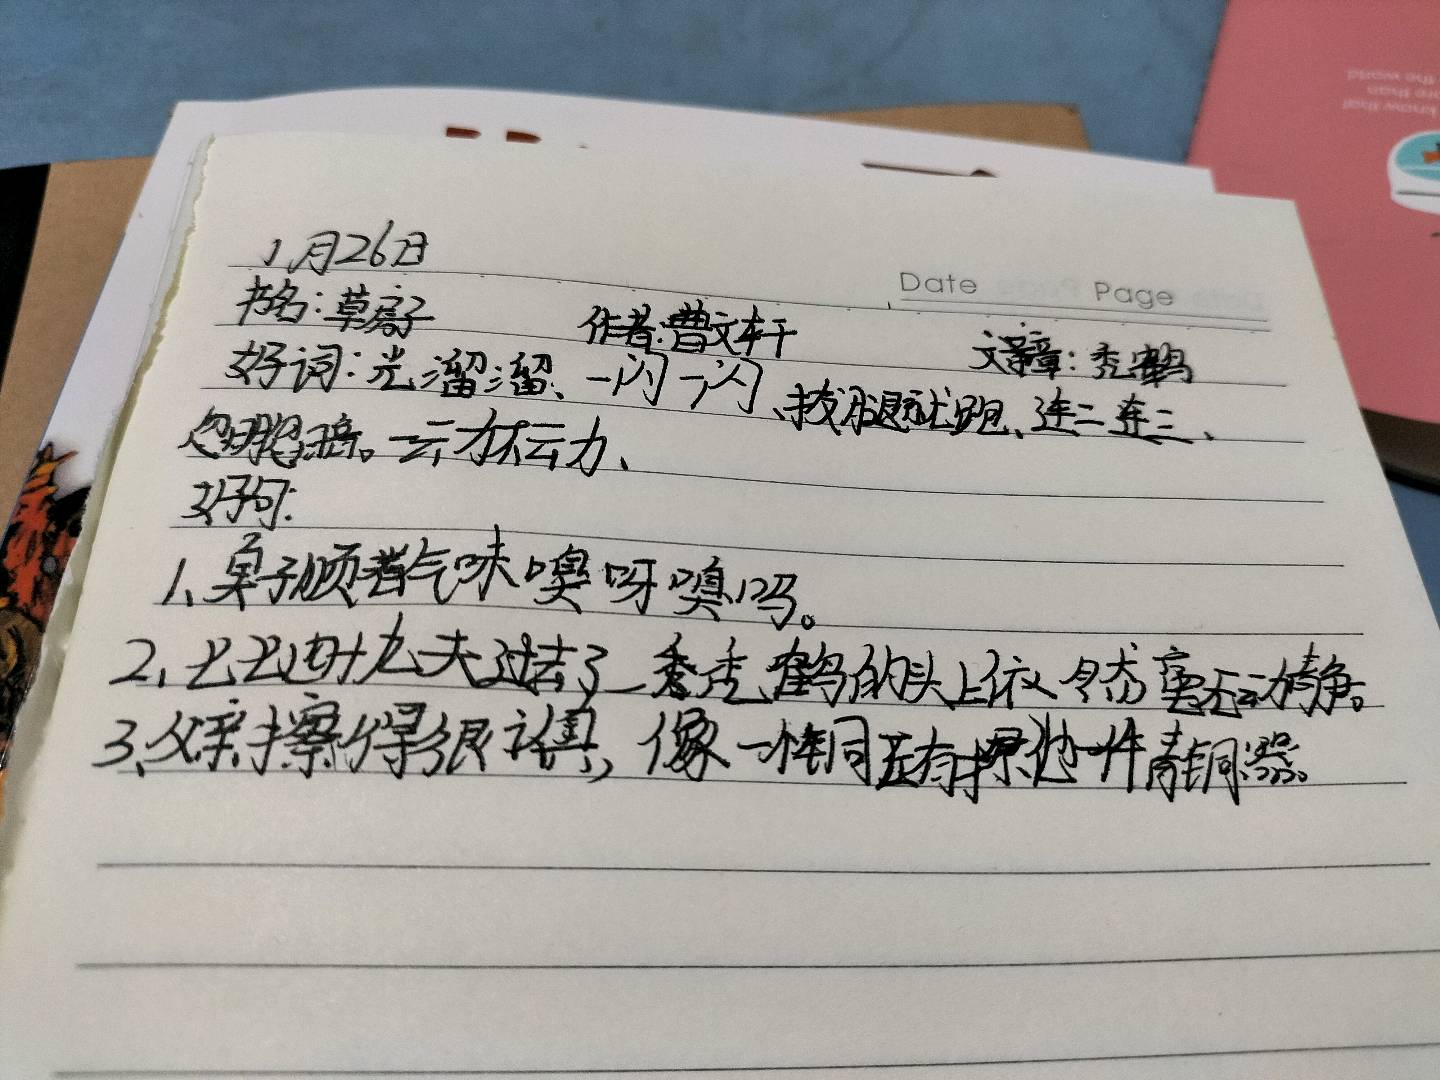 know that
more than
the world
Date Page
1月26日
书名：草房子 作者：曹文轩 文章：秃鹤
好词：光溜溜、一闪一闪、拔腿就跑、连二连三、
忽明忽暗。一云力不云力、
好句：
1、鼻子顺着气味嗅呀嗅吗。
2、七七四十九天过去了_秃鹤的头上依然毫无动静。
3、父亲擦得很认真，像一样同在擦他一件青铜器。